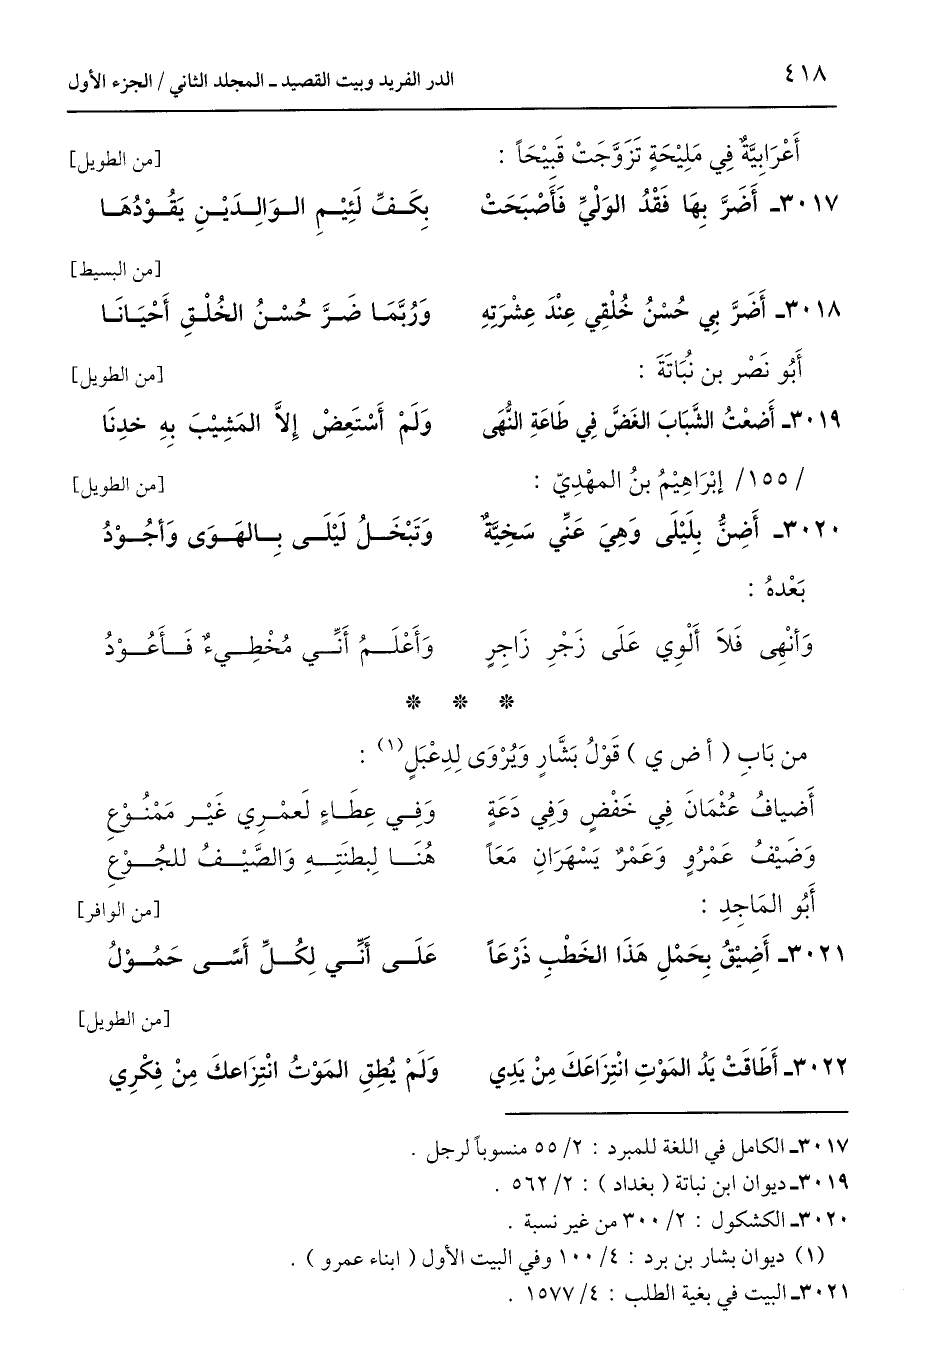 ٤١٨ الدر الفريد وبيت القصيد ـ المجلد الثاني / الجزء الأول
أَعْرَابِيَّةٌ فِي مَلِيْحَةٍ تَزَوَّجَتْ قَبِيْحَاً : [من الطويل]
٣٠١٧ـ أَضَرَّ بِهَا فَقْدُ الوَلْيِّ فَأَصْبَحَتْ بِكَفِّ لَئِيْمِ الوَالِدَيْنِ يَقُوْدُهَا
[من البسيط]
٣٠١٨ـ أَضَرَّ بِي حُسْنُ خُلْقِي عِنْدَ عِشْرَتِهِ وَرُبَّمَا ضَرَّ حُسْنُ الخُلْقِ أَحْيَانَا
أَبُو نَصْر بن نُبُاتَةَ : [من الطويل]
٣٠١٩ـ أَضعْتُ الشَّبَابَ الغَضَّ فِي طَاعَةِ النُّهَى وَلَمْ أَسْتَعِضْ إِلاَّ المَشِيْبَ بِهِ خدِنَا
/ ١٥٥/ إِبْرَاهِيْمُ بنُ المهْدِيّ : [من الطويل]
٣٠٢٠ـ أَضِنُّ بِلَيْلَى وَهِيَ عَنِّي سَخِيَّةٌ وَتَبْخَلُ لَيْلَى بِالهَوَى وَأجُوْدُ
بَعْدهُ :
وَأنْهى فَلاَ أَلْوِي عَلَى زَجْرِ زَاجِرٍ وَأَعْلَمُ أَنِّي مُخْطِيءٌ فَأَعُوْدُ
* * *
من بَابِ ( أ ض ي ) قَوْلُ بَشَّارٍ وَيُرْوَى لِدِعْبَلٍ(١) :
أَضيافُ عُثْمَانَ فِي خَفْضٍ وَفِي دَعَةٍ وَفِي عِطَاءٍ لَعمْرِي غَيْر مَمْنُوْعِ
وَضَيْفُ عَمْرُوٍ وَعَمْرٌ يَسْهَرَانِ مَعَاً هُنَا لِبطنَتِهِ وَالضَّيْفُ للجُوْعِ
أَبُو المَاجِدِ : [من الوافر]
٣٠٢١ـ أَضِيْقُ بِحَمْلِ هَذَا الخَطْبِ ذَرْعَاً عَلَى أَنِّي لِكُلِّ أَسًى حَمُوْلُ
[من الطويل]
٣٠٢٢ـ أَطَاقَتْ يَدُ المَوْتِ انْتِزَاعَكَ مِنْ يَدِي وَلَمْ يُطِقِ المَوْتُ انْتِزَاعكَ مِنْ فِكْرِي
٣٠١٧ـ الكامل في اللغة للمبرد : ٢/ ٥٥ منسوباً لرجل .
٣٠١٩ـ ديوان ابن نباتة ( بغداد ) : ٢/ ٥٦٢ .
٣٠٢٠ـ الكشكول : ٢/ ٣٠٠ من غير نسبة .
(١) ديوان بشار بن برد : ٤/ ١٠٠ وفي البيت الأول ( ابناء عمرو ) .
٣٠٢١ـ البيت في بغية الطلب : ٤/ ١٥٧٧ .